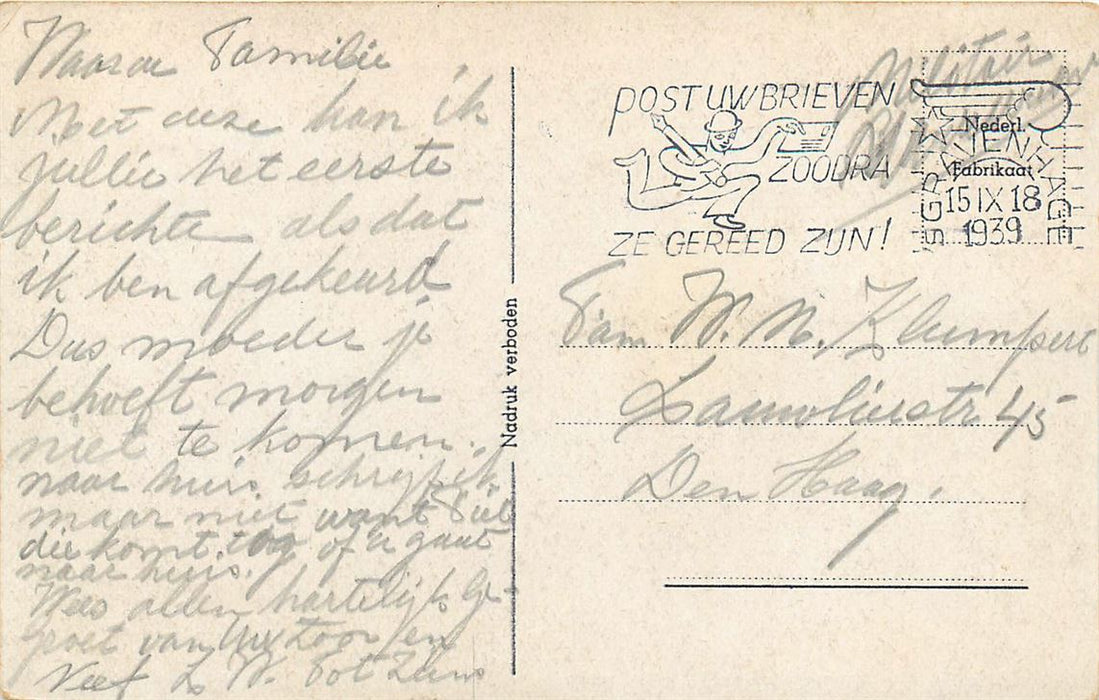 Waarde Familie
Met deze kan ik
jullie het eerste
berichte alsdat
ik ben afgekeurd
Dus moeder je
behoeft morgen
niet te komen.
naar huis schrijf ik
maar niet want Piet
die komt tog of u gaat
naar huis.
Wees allen hartelijk Ge-
groet van Uw Zoon en
Neef W. Tot Ziens
Nadruk verboden
POST UW BRIEVEN
ZOODRA
ZE GEREED ZIJN!
Militair
Nederl.
Fabrikaat
'S GRAVENHAGE
15 IX 18
1939
Fam W. N. Klumpert
45
Den Haag.